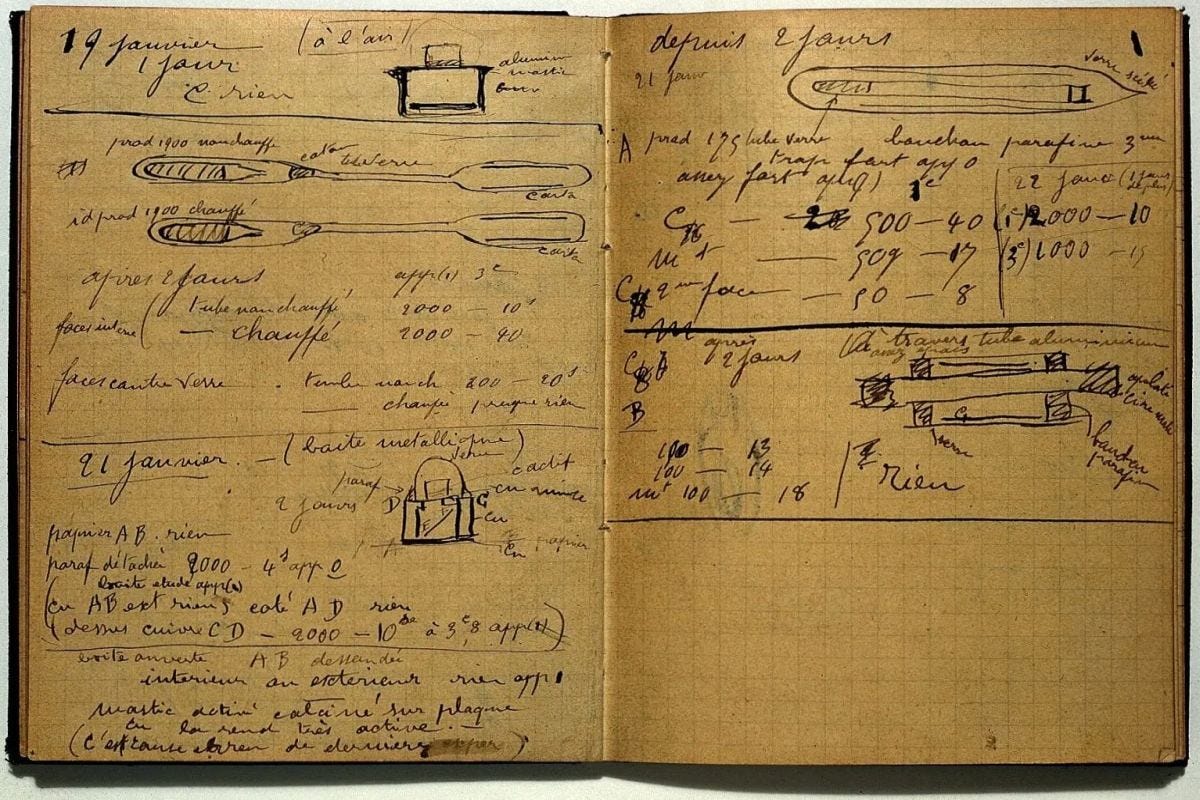 19 janvier
(à l'air)
1 jour
C rien
aluminium
mastic
prod 1900 non chauffé
coton
tube verre
carta
id prod 1900 chauffé
C
carta
après 2 jours app(1) 3c
faces interne ( tube non chauffé 2000 — 10s
— chauffé 2000 — 20
faces contre verre . tube nonch 200 — 20s
— chauffé presque rien
21 janvier. — (boite metallique)
verre
paraf
2 jours
D C
cadit
cu mince
cu
A
Cu papier
papier AB. rien
paraf détachée 2000 — 4s app 0
boite etude app(1)
(cu AB ext rien, coté AD rien
(dessus cuivre CD — 2000 — 10 à 3c,8 app(1))
boite ouverte AB dessoudée
interieur ou exterieur rien app 1
mastic activé calciné sur plaque
cu la rend très active. —
(C'est cause erreur de derniere exper)
depuis 2 jours
1
21 janv
verre scellé
A prod 175 tube verre bouchon parafine 3
trop fort app 0
assez fort app
1c
22 janv (1 jours de plus)
C — 500 — 40 (1c) 2000 — 10
mt — 509 — 17 (3c) 1000 — 15
C 2me face — 50 — 8
m
après
C A 2 jours (à travers tube aluminium
assez épais
B
C
verre
bouchon
parafin
100 — 13
100 — 14
mt 100 — 18
rien